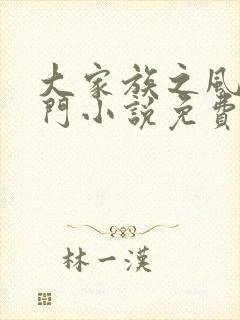 大家族之風
門小說免費
林一漢